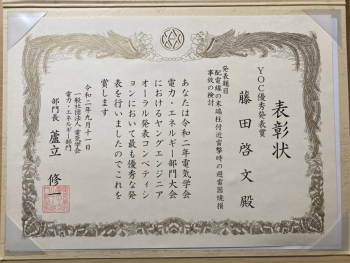 表彰状
YOC優秀発表賞
藤田啓文殿
発表題目
配電線の末端柱付近雷撃時の避雷器焼損
事故の検討
あなたは令和二年電気学会
電力・エネルギー部門大会
におけるヤングエンジニア
オーラル発表コンペティシ
ョンにおいて最も優秀な発
表を行いましたのでこれを
賞します
令和二年九月十一日
一般社団法人 電気学会
電力・エネルギー部門
部門長 蘆立修一